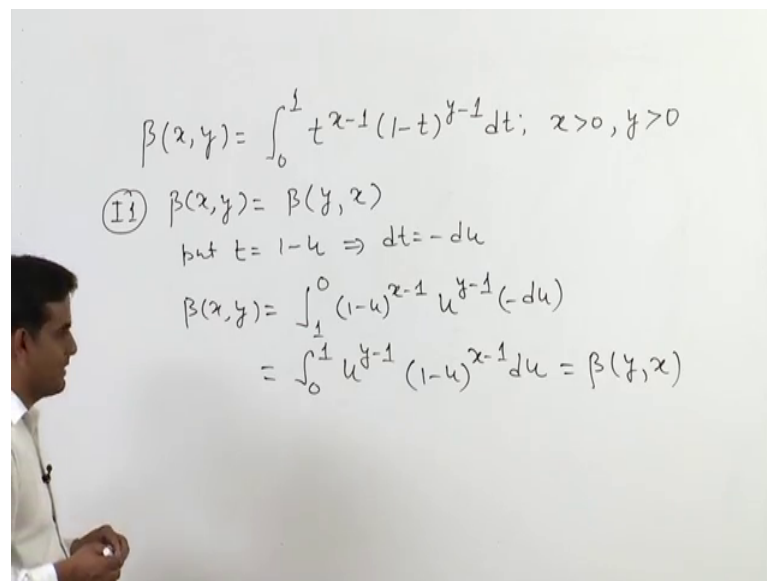 β(x,y)= ∫₀¹ t^{x-1} (1-t)^{y-1} dt; x>0, y>0
(I1) β(x,y)= β(y,x)
put t= 1-u ⇒ dt=-du
β(x,y)= ∫₁⁰ (1-u)^{x-1} u^{y-1} (-du)
= ∫₀¹ u^{y-1} (1-u)^{x-1} du = β(y,x)